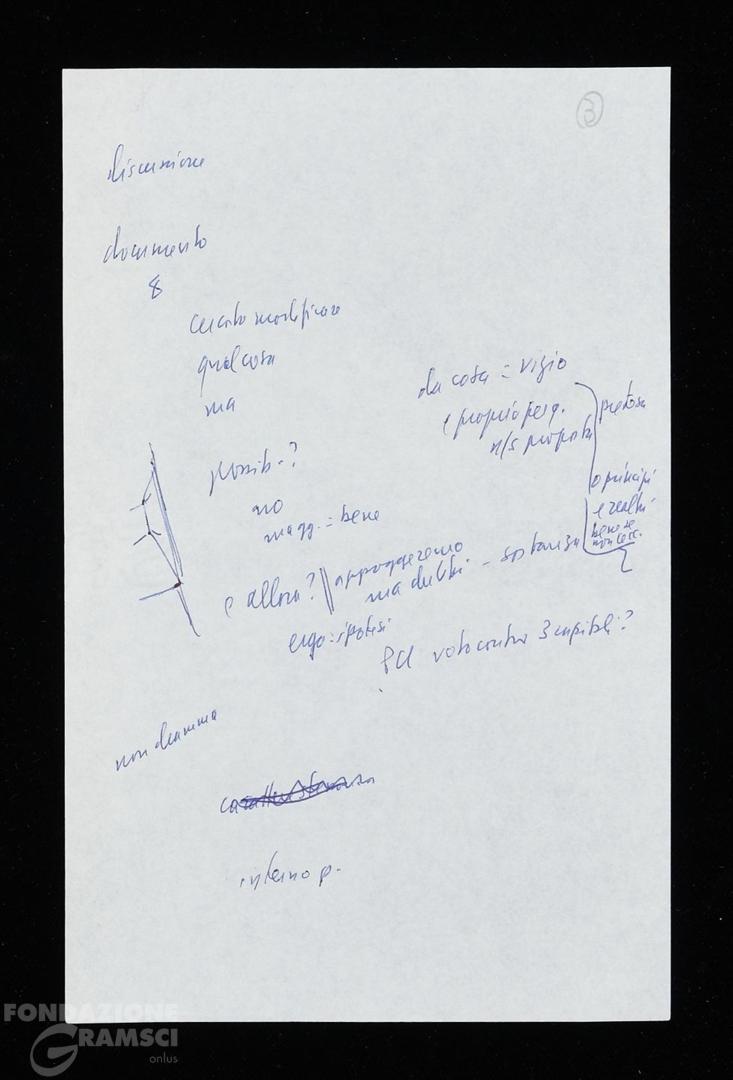 3
discussione
documento
8
modificare
qualcosa
ma
da cosa = vizio
e proprio perq.
n/s proposta
pretesa
possib.?
no
magg. = bene
o principi
e realtà
bene se
e allora? appoggeremo
ma dubbi - sostanza
ergo: ipotesi
PCI voto contro 3 capitoli?
non dramma
interno p.
FONDAZIONE
GRAMSCI
onlus